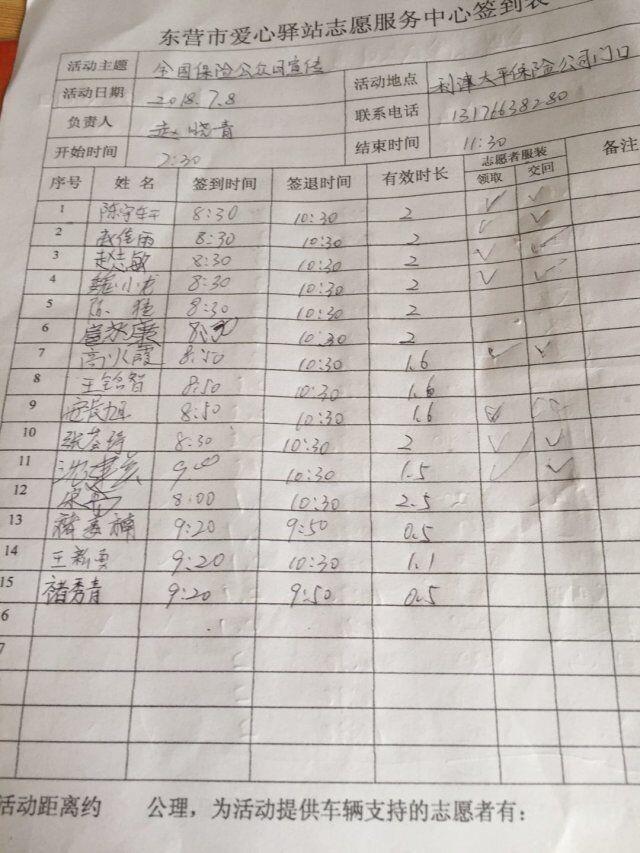 东营市爱心驿站志愿服务中心签到表
活动主题 全国保险公众日宣传 活动地点 利津太平保险公司门口
活动日期 2018.7.8 联系电话 13176638280
负责人 赵晓青 结束时间 11:30
开始时间 7:30
序号 姓名 签到时间 签退时间 有效时长 志愿者服装 领取 交回 备注
1 8:30 10:30 2 ✓ ✓
2 赵佳雨 8:30 10:30 2 ✓ ✓
3 赵志敏 8:30 10:30 2 ✓ ✓
4 小龙 8:30 10:30 2 ✓ ✓
5 陈 8:30 10:30 2
6 8:30 10:30 2
7 高小霞 8:50 10:30 1.6 ✓ ✓
8 王铭智 8:50 10:30 1.6
9 8:50 10:30 1.6
10 张 8:30 10:30 2 ✓ ✓
11 9:00 10:30 1.5 ✓ ✓
12 8:00 10:30 2.5
13 褚 楠 9:20 9:50 0.5
14 王新勇 9:20 10:30 1.1
15 褚秀青 9:20 9:50 0.5
6
7
活动距离约 公理，为活动提供车辆支持的志愿者有：